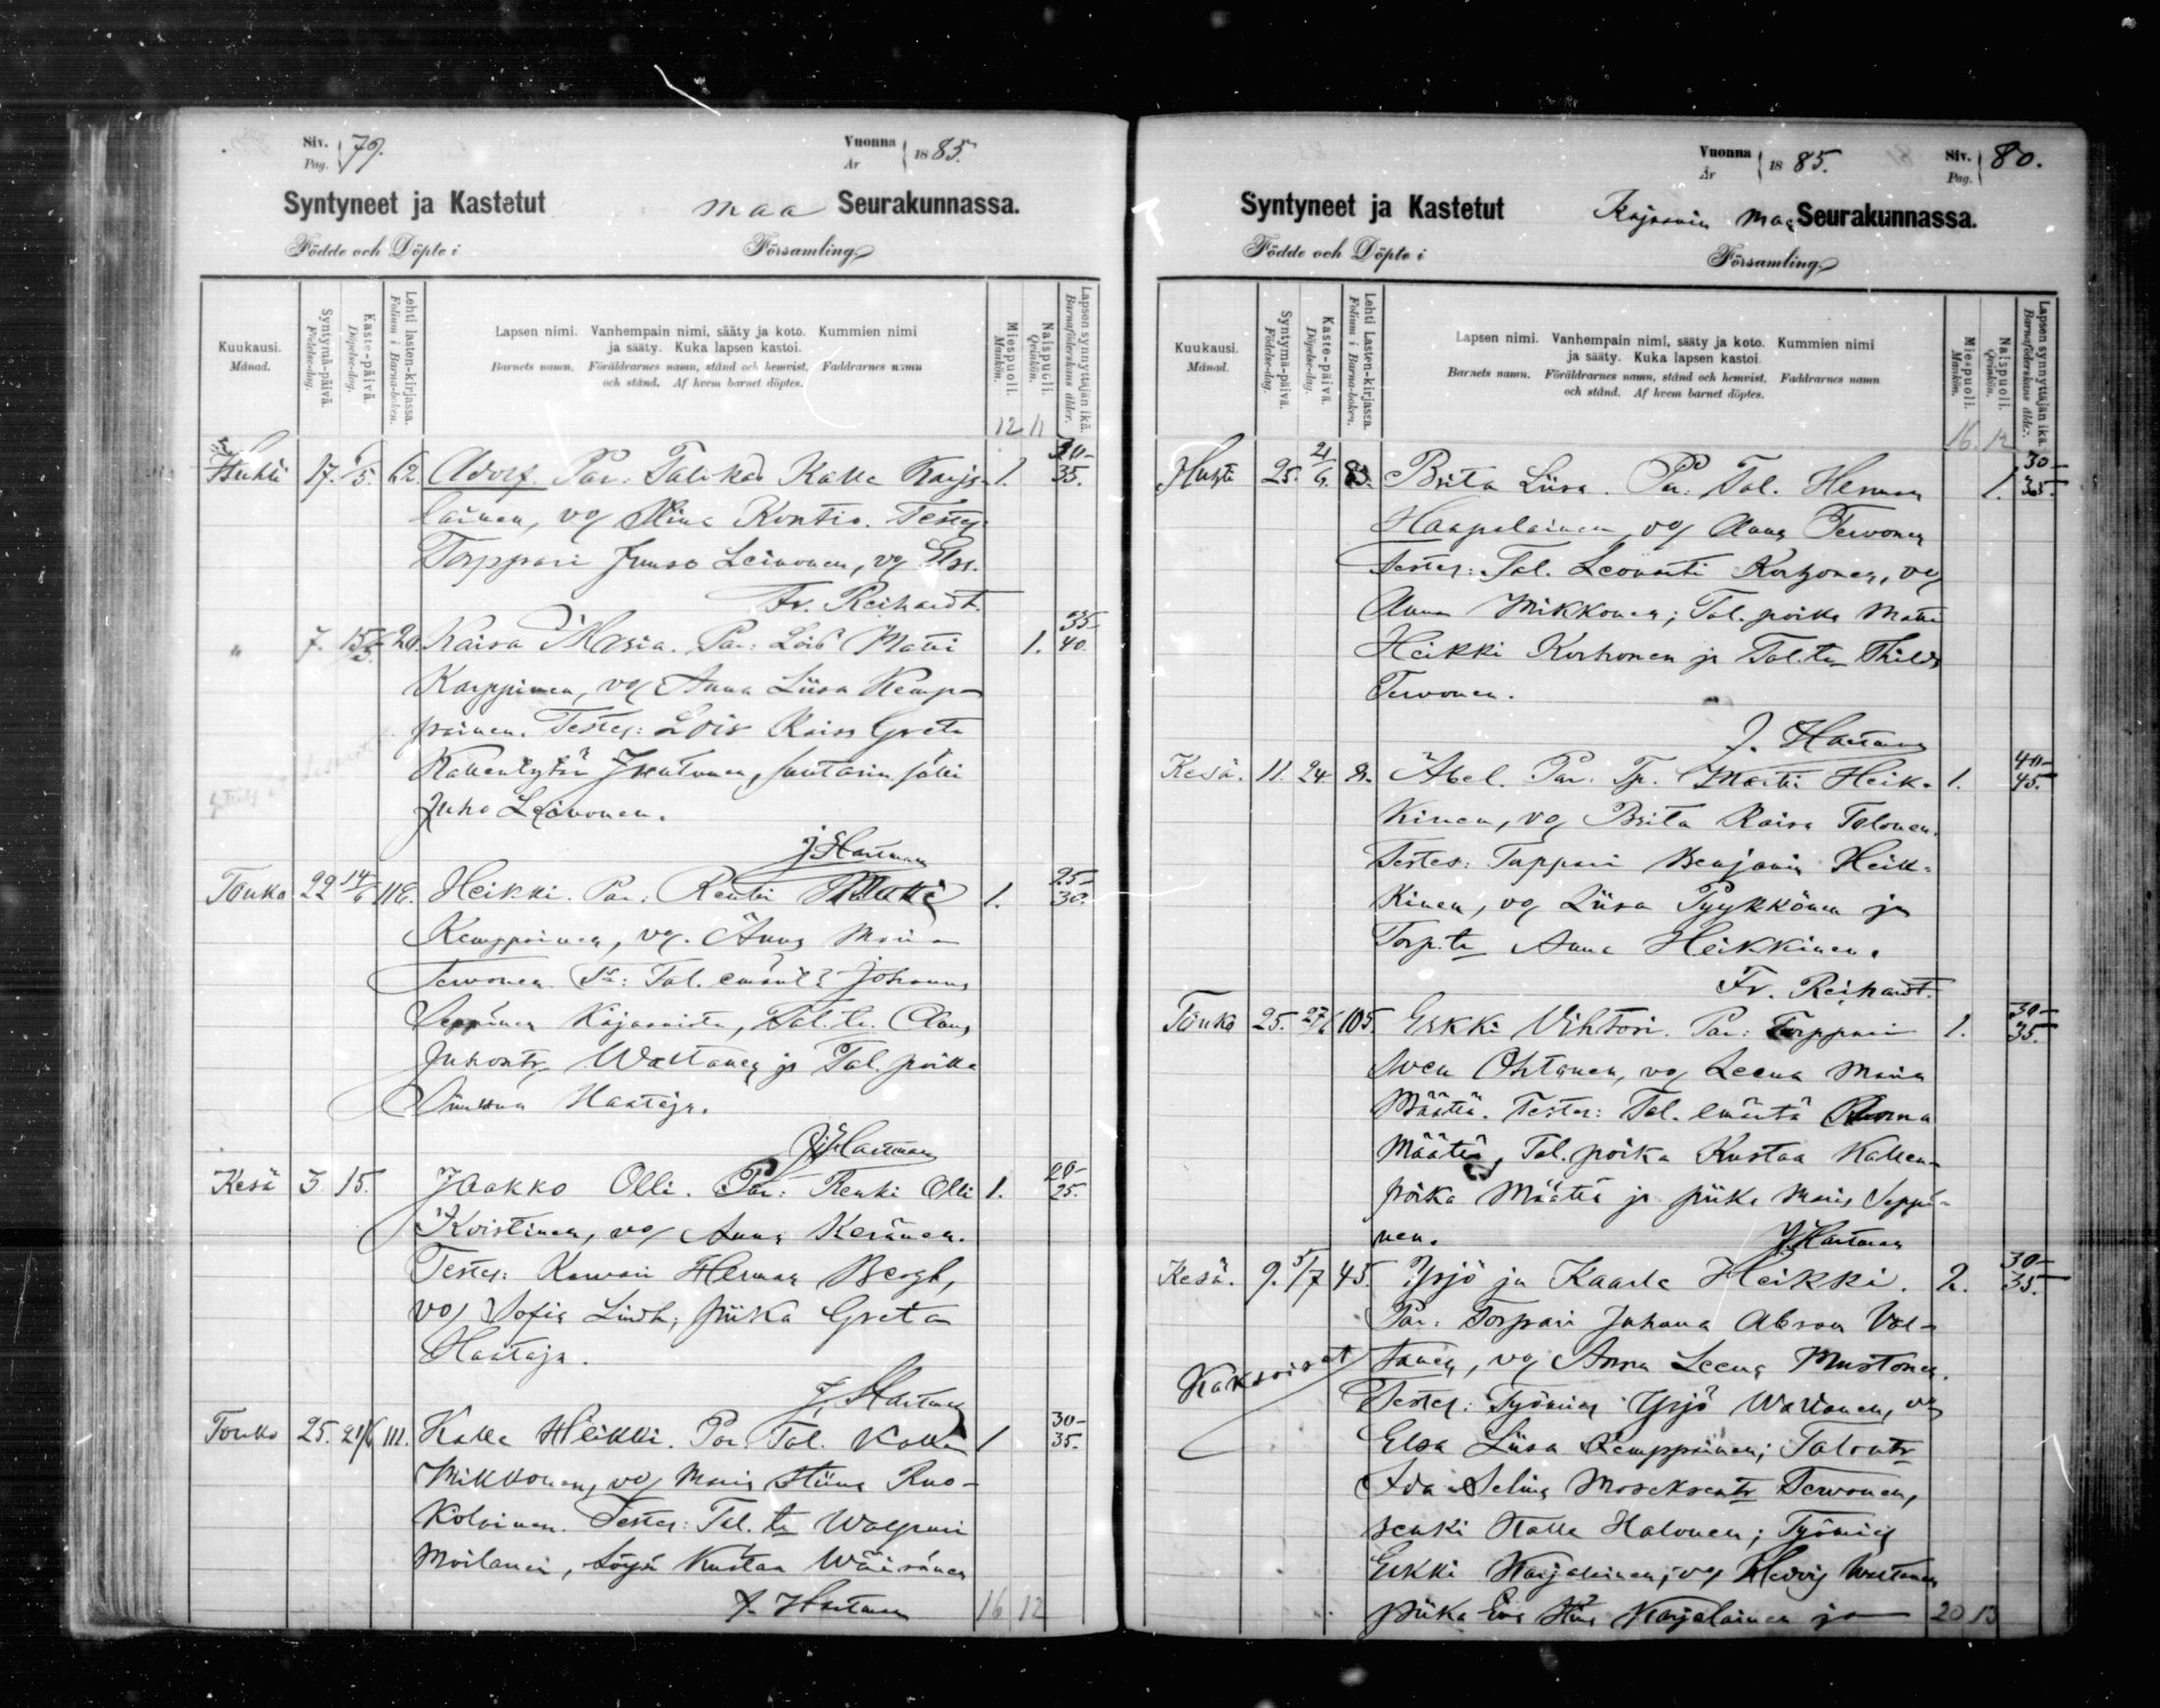 Siv. Pag. 79.
Vuonna År 1885.
Syntyneet ja Kastetut maa Seurakunnassa.
Födde och Döpte i Församling
Kuukausi. Månad.
Syntymä-päivä. Födelse-dag.
Kaste-päivä. Döpelse-dag.
Lehti lasten-kirjassa. Folium i Barna-boken.
Lapsen nimi. Vanhempain nimi, sääty ja koto. Kummien nimi
ja sääty. Kuka lapsen kastoi.
Barnets namn. Föräldrarnes namn, stånd och hemvist. Faddrarnes namn
och stånd. Af hvem barnet döptes.
Miespuoli. Mankön.
Naispuoli. Qvinkön.
Lapsen synnyttäjän ikä. Barnaföderskans ålder.
12 11
Huhti 17. /5. 62. Adolf. Par: Kalle Karja- 1. 35.
lainen, vg Kontio. Testes:
Torppari Juuso Leinonen, vg
Fr. Reihardt.
" 7. 15/5. 20. Kaisa Maria. Par: Lois Matti 1. 35-40.
Karppinen, vg Anna Liisa Kemp-
painen. Testes: Lois Kaisa Greta
Kallentytär
Juho Leinonen.
J. Hartman
Touko 22 14/6 118. Heikki. Par: Renki 1. 25-30.
Kemppainen, vg. Anna Maria
Terwonen. Ts: Tal. emäntä Johanna
Seppänen Kajaanista, Tal. tr.
Juhontr Wattanen ja Tal. poika
Haataja.
J. Hartman
Kesä 3. 15. Jaakko Olli. Par: Renki Olli 1. 20-25.
Koistinen, vg Anna Keränen.
Testes: Herman Bergh,
vg Sofia Lindh; piika Greta
Haataja.
J. Hartman
Touko 25. 21/6 111. Kalle Heikki. Par: Tal. Kalle 1 30-35.
Mikkonen, vg Maria Stiina Ruo-
kolainen. Testes: Tal. tr Walpuri
Moilanen, Kustaa Wäisänen
J. Hartman 16 12
Vuonna År 1885.
Siv. Pag. 80.
Syntyneet ja Kastetut Kajaanin maa Seurakunnassa.
Födde och Döpte i Församling
Kuukausi. Månad.
Syntymä-päivä. Födelse-dag.
Kaste-päivä. Döpelse-dag.
Lehti Lasten-kirjassa. Folium i Barna-boken.
Lapsen nimi. Vanhempain nimi, sääty ja koto. Kummien nimi
ja sääty. Kuka lapsen kastoi.
Barnets namn. Föräldrarnes namn, stånd och hemvist. Faddrarnes namn
och stånd. Af hvem barnet döptes.
Miespuoli. Mankön.
Naispuoli. Qvinkön.
Lapsen synnyttäjän ikä. Barnaföderskans ålder.
16. 12
Huhti 25. 21/6. 83. Brita Liisa. Par: Tal. Herman 1. 30-35.
Haapalainen, vg Anna Terwonen
Testes: Tal. Leonarti Korhonen, vg
Anna Mikkonen; Tal. poika Matti
Heikki Korhonen ja Tal. tr Thilda
Terwonen.
J. Hartman
Kesä. 11. 24. 8. Abel. Par. Tp. Martti Heik- 1. 40-45.
kinen, vg Brita Kaisa Tolonen.
Testes: Torppari Benjamin Heik-
kinen, vg Liisa Pyykkönen ja
Torp. tr Anna Heikkinen.
Fr. Reihardt.
Touko 25. 27/6 105. Erkki Vihtori. Par: Torppari 1. 30-35.
Sven Ohtanen, vg Leena Maria
Määttä. Testes: Tal. emäntä
Määttä, Tal. poika Kustaa Kallen-
poika Määttä ja piika Maria Seppä-
nen. J. Hartman
Kesä. 9. 5/7 45. Yrjö ja Kaarle Heikki. 2. 30-35.
Par: Torpari Juhana Abram Val-
Kaksoiset tanen, vg Anna Leena Mustonen.
Testes: Työmies Yrjö Wartanen, vg
Elsa Liisa Kemppainen; Talontr
Ada Selina Moseksentr Terwonen,
renki Kalle Halonen; Työmies
Erkki Karjalainen, vg Hedvig
piika Eva Karjalainen ja 20 13